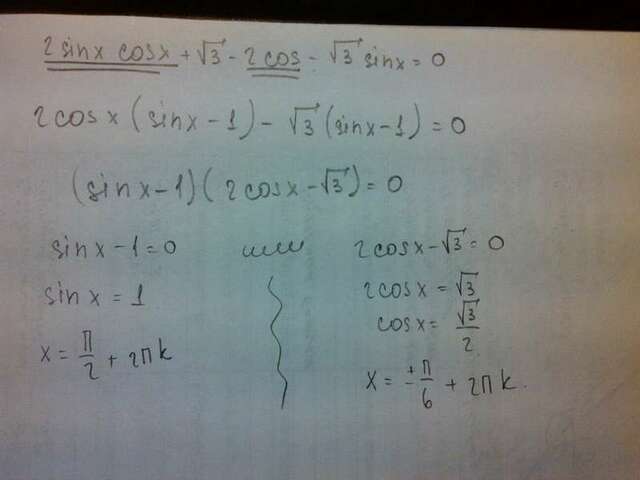 2 sinx cosx + √3 - 2 cos - √3 sinx = 0
2cosx (sinx - 1) - √3 (sinx - 1) = 0
(sinx - 1)(2cosx - √3) = 0
sinx - 1 = 0 или 2cosx - √3 = 0
sinx = 1 2cosx = √3
cosx = √3/2
x = π/2 + 2πk x = ±π/6 + 2πk.